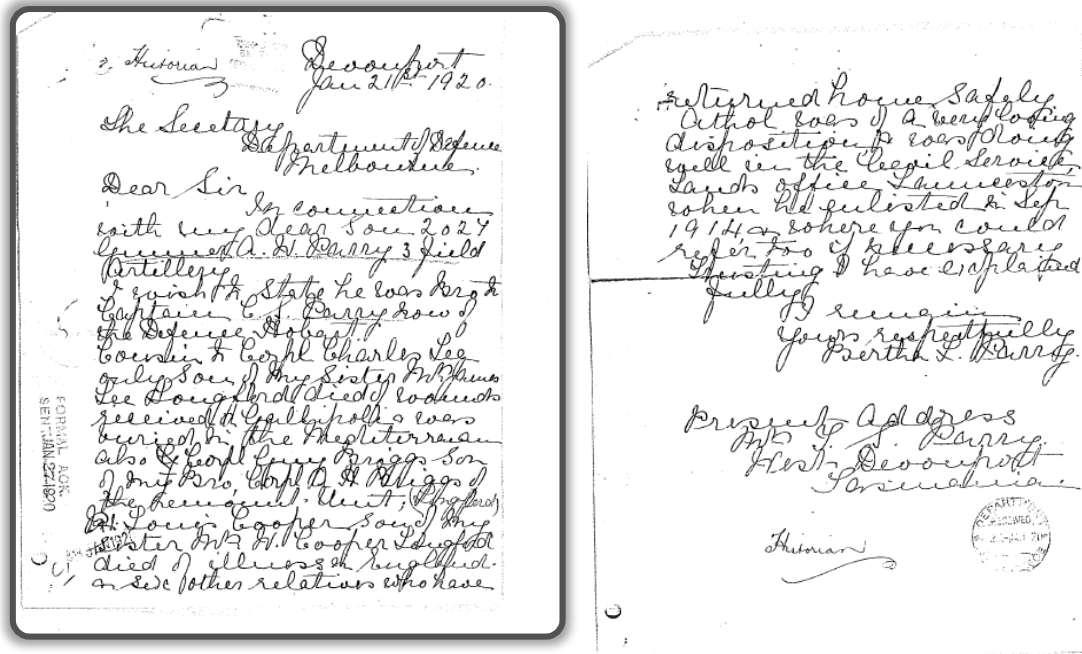 Historian
Devonport
Jan 21st 1920.
The Secetary
Department of Defence
Melbourne.
Dear Sir
In connection
with my dear son 2027
Gunner A. H. Parry 3 Field
Artillery
I wish to state he was Bro to
Captain C. S. Parry now of
the Defence Hobart
Cousin to Corpl Charles Lee
only son of my sister Mrs James
Lee Longford died of wounds
received at Gallipoli & was
buried in the Mediterranean
also to Corpl Briggs son
of my Bro, Corpl A H Briggs of
the Remount Unit, (Longford)
Louis Cooper son of my
sister Mrs W. Cooper Longford
died of illness in England.
& six other relatives who have
FORMAL ACK.
SENT JAN 27 1920
returned home safely
Athol was of a very loving
disposition & was doing
well in the Civil Service
Lands office Launceston
when he enlisted in Sep
1914, & where you could
refer too if necessary
Trusting I have explained
fully
I remain
Yours respectfully
Bertha L. Parry.
Present Address
Mrs Parry
West Devonport
Tasmania
RECEIVED
Historian